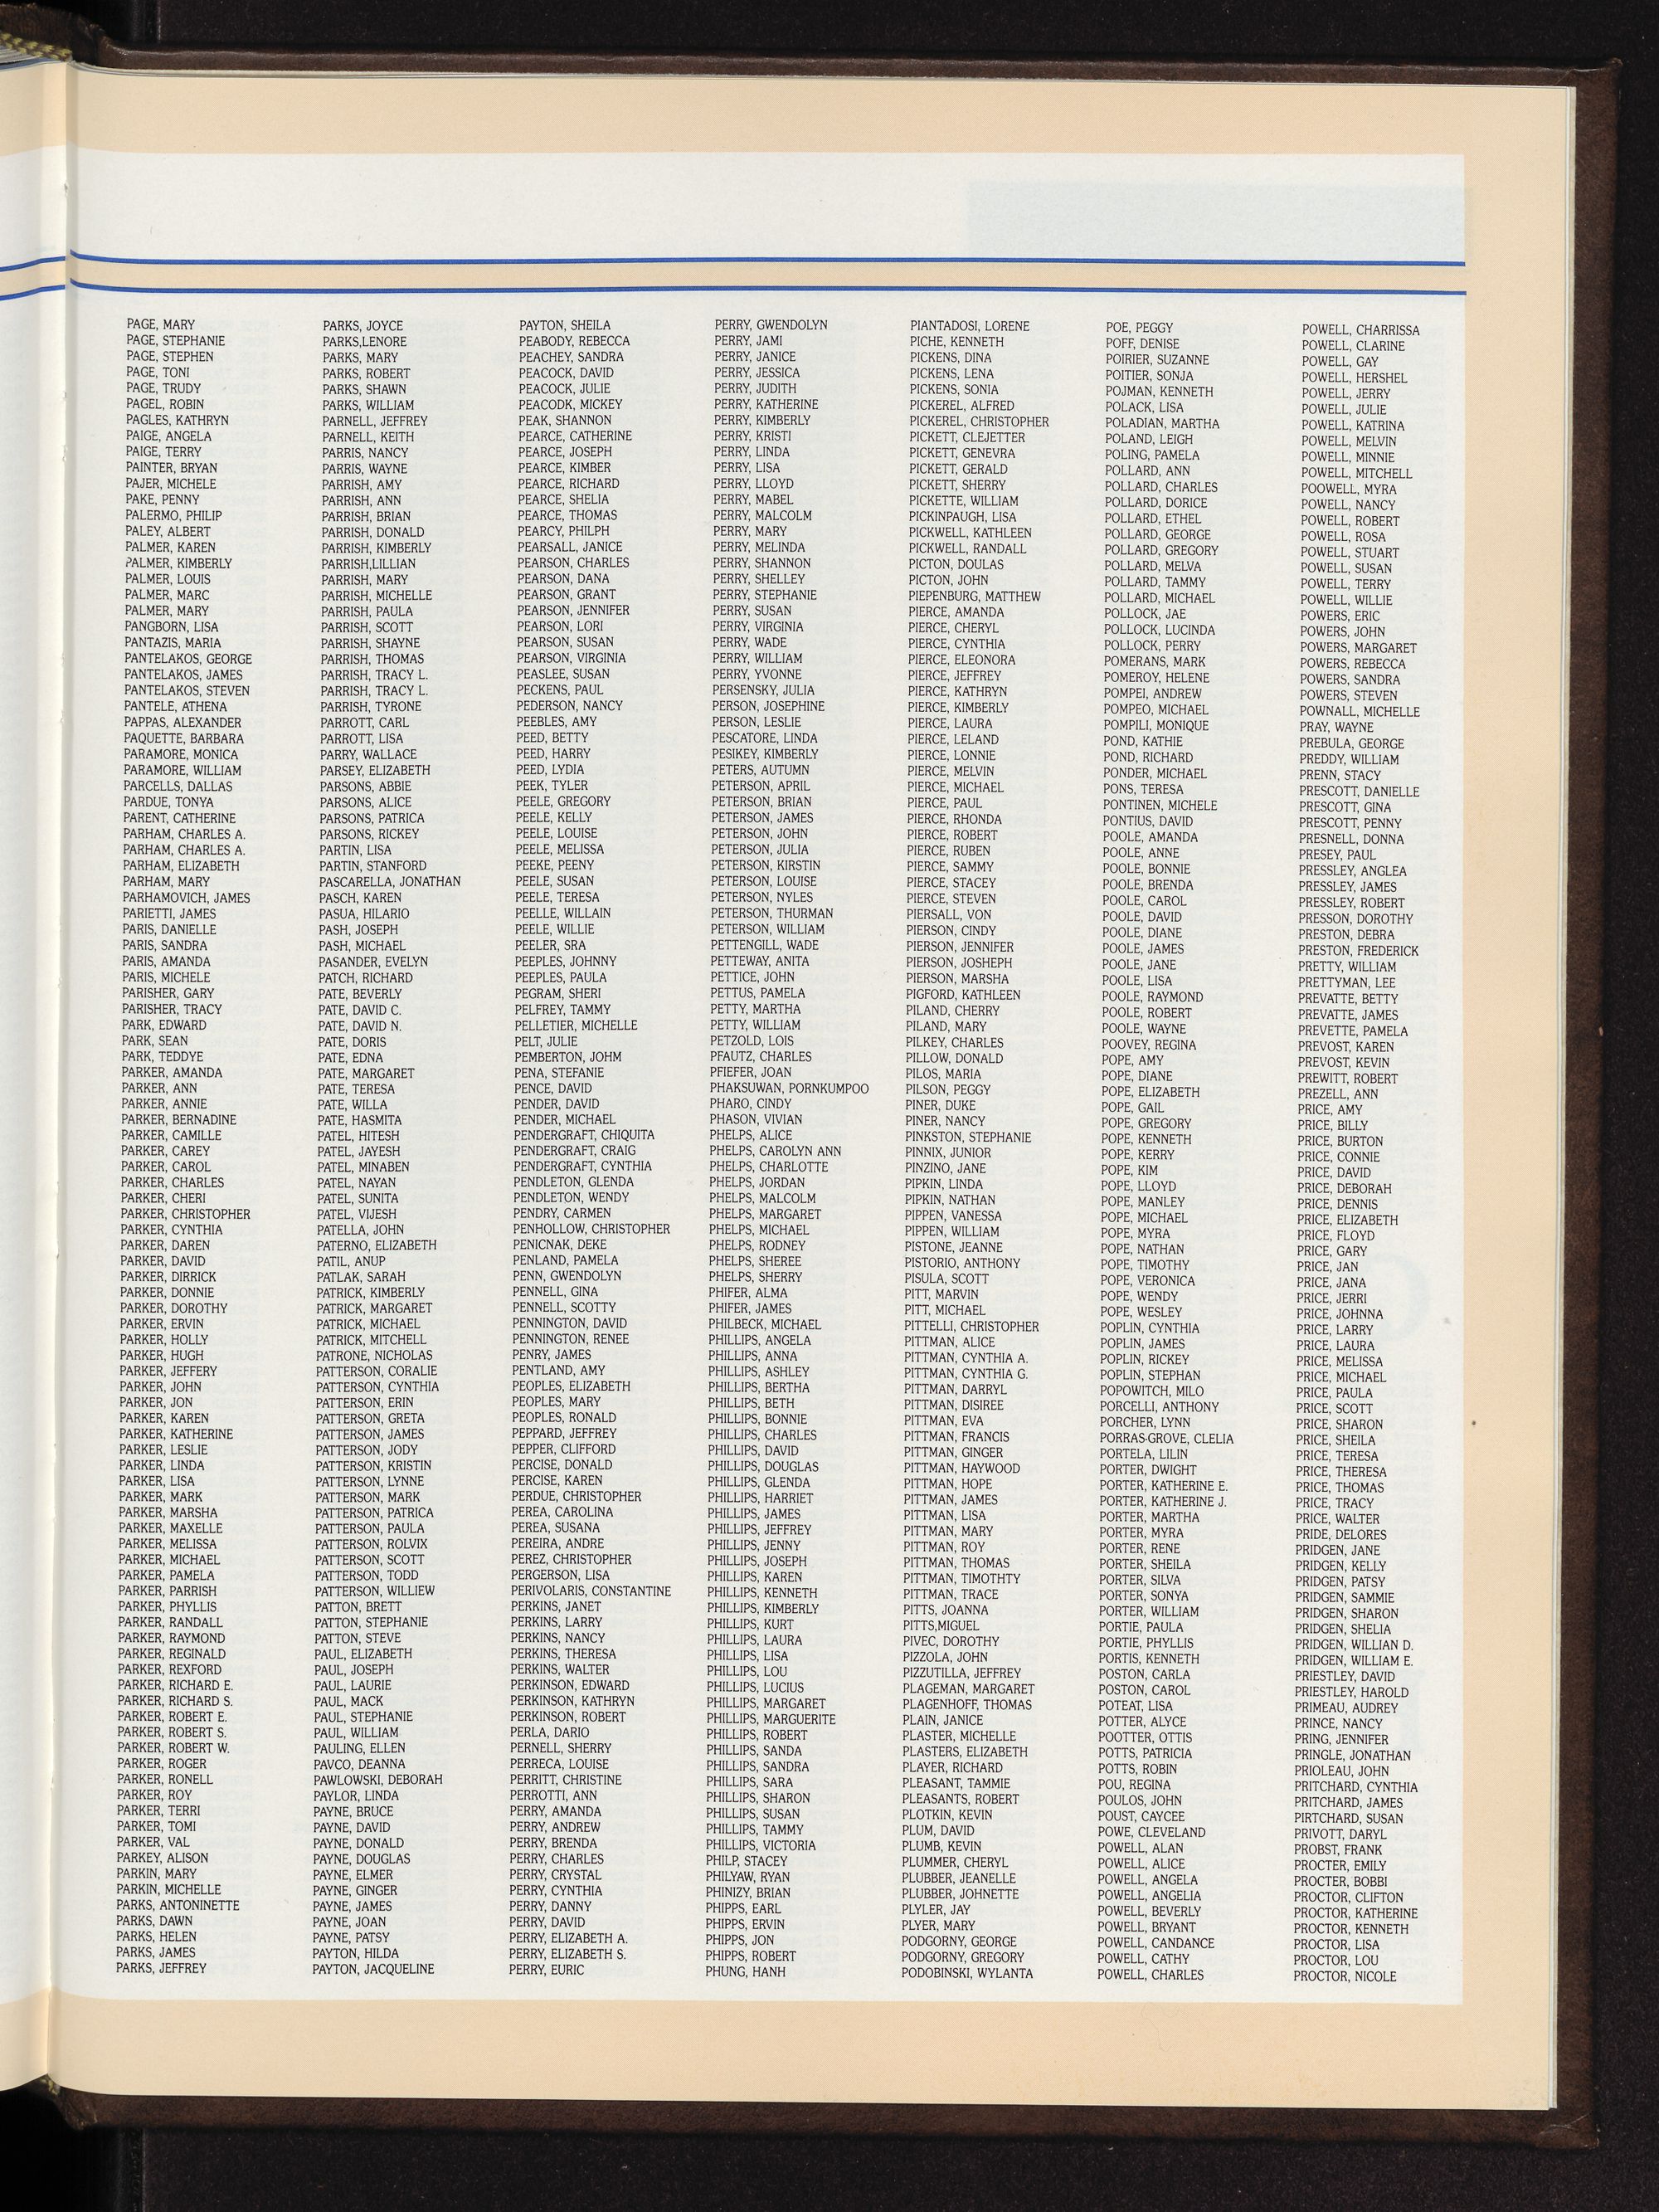 PAGE, MARY
PAGE, STEPHANIE
PAGE, STEPHEN
PAGE, TONI
PAGE, TRUDY
PAGEL, ROBIN
PAGLES, KATHRYN
PAIGE, ANGELA
PAIGE, TERRY
PAINTER, BRYAN
PAJER, MICHELE
PAKE, PENNY
PALERMO, PHILIP
PALEY, ALBERT
PALMER, KAREN
PALMER, KIMBERLY
PALMER, LOUIS
PALMER, MARC
PALMER, MARY
PANGBORN, LISA
PANTAZIS, MARIA
PANTELAKOS, GEORGE
PANTELAKOS, JAMES
PANTELAKOS, STEVEN
PANTELE, ATHENA
PAPPAS, ALEXANDER
PAQUETTE, BARBARA
PARAMORE, MONICA
PARAMORE, WILLIAM
PARCELLS, DALLAS
PARDUE, TONYA
PARENT, CATHERINE
PARHAM, CHARLES A.
PARHAM, CHARLES A.
PARHAM, ELIZABETH
PARHAM, MARY
PARHAMOVICH, JAMES
PARIETTI, JAMES
PARIS, DANIELLE
PARIS, SANDRA
PARIS, AMANDA
PARIS, MICHELE
PARISHER, GARY
PARISHER, TRACY
PARK, EDWARD
PARK, SEAN
PARK, TEDDYE
PARKER, AMANDA
PARKER, ANN
PARKER, ANNIE
PARKER, BERNADINE
PARKER, CAMILLE
PARKER, CAREY
PARKER, CAROL
PARKER, CHARLES
PARKER, CHERI
PARKER, CHRISTOPHER
PARKER, CYNTHIA
PARKER, DAREN
PARKER, DAVID
PARKER, DIRRICK
PARKER, DONNIE
PARKER, DOROTHY
PARKER, ERVIN
PARKER, HOLLY
PARKER, HUGH
PARKER, JEFFERY
PARKER, JOHN
PARKER, JON
PARKER, KAREN
PARKER, KATHERINE
PARKER, LESLIE
PARKER, LINDA
PARKER, LISA
PARKER, MARK
PARKER, MARSHA
PARKER, MAXELLE
PARKER, MELISSA
PARKER, MICHAEL
PARKER, PAMELA
PARKER, PARRISH
PARKER, PHYLLIS
PARKER, RANDALL
PARKER, RAYMOND
PARKER, REGINALD
PARKER, REXFORD
PARKER, RICHARD E.
PARKER, RICHARD S.
PARKER, ROBERT E.
PARKER, ROBERT S.
PARKER, ROBERT W.
PARKER, ROGER
PARKER, RONELL
PARKER, ROY
PARKER, TERRI
PARKER, TOMI
PARKER, VAL
PARKEY, ALISON
PARKIN, MARY
PARKIN, MICHELLE
PARKS, ANTONINETTE
PARKS, DAWN
PARKS, HELEN
PARKS, JAMES
PARKS, JEFFREY
PARKS, JOYCE
PARKS,LENORE
PARKS, MARY
PARKS, ROBERT
PARKS, SHAWN
PARKS, WILLIAM
PARNELL, JEFFREY
PARNELL, KEITH
PARRIS, NANCY
PARRIS, WAYNE
PARRISH, AMY
PARRISH, ANN
PARRISH, BRIAN
PARRISH, DONALD
PARRISH, KIMBERLY
PARRISH,LILLIAN
PARRISH, MARY
PARRISH, MICHELLE
PARRISH, PAULA
PARRISH, SCOTT
PARRISH, SHAYNE
PARRISH, THOMAS
PARRISH, TRACY L.
PARRISH, TRACY L.
PARRISH, TYRONE
PARROTT, CARL
PARROTT, LISA
PARRY, WALLACE
PARSEY, ELIZABETH
PARSONS, ABBIE
PARSONS, ALICE
PARSONS, PATRICA
PARSONS, RICKEY
PARTIN, LISA
PARTIN, STANFORD
PASCARELLA, JONATHAN
PASCH, KAREN
PASUA, HILARIO
PASH, JOSEPH
PASH, MICHAEL
PASANDER, EVELYN
PATCH, RICHARD
PATE, BEVERLY
PATE, DAVID C.
PATE, DAVID N.
PATE, DORIS
PATE, EDNA
PATE, MARGARET
PATE, TERESA
PATE, WILLA
PATE, HASMITA
PATEL, HITESH
PATEL, JAYESH
PATEL, MINABEN
PATEL, NAYAN
PATEL, SUNITA
PATEL, VIJESH
PATELLA, JOHN
PATERNO, ELIZABETH
PATIL, ANUP
PATLAK, SARAH
PATRICK, KIMBERLY
PATRICK, MARGARET
PATRICK, MICHAEL
PATRICK, MITCHELL
PATRONE, NICHOLAS
PATTERSON, CORALIE
PATTERSON, CYNTHIA
PATTERSON, ERIN
PATTERSON, GRETA
PATTERSON, JAMES
PATTERSON, JODY
PATTERSON, KRISTIN
PATTERSON, LYNNE
PATTERSON, MARK
PATTERSON, PATRICA
PATTERSON, PAULA
PATTERSON, ROLVIX
PATTERSON, SCOTT
PATTERSON, TODD
PATTERSON, WILLIEW
PATTON, BRETT
PATTON, STEPHANIE
PATTON, STEVE
PAUL, ELIZABETH
PAUL, JOSEPH
PAUL, LAURIE
PAUL, MACK
PAUL, STEPHANIE
PAUL, WILLIAM
PAULING, ELLEN
PAVCO, DEANNA
PAWLOWSKI, DEBORAH
PAYLOR, LINDA
PAYNE, BRUCE
PAYNE, DAVID
PAYNE, DONALD
PAYNE, DOUGLAS
PAYNE, ELMER
PAYNE, GINGER
PAYNE, JAMES
PAYNE, JOAN
PAYNE, PATSY
PAYTON, HILDA
PAYTON, JACQUELINE
PAYTON, SHEILA
PEABODY, REBECCA
PEACHEY, SANDRA
PEACOCK, DAVID
PEACOCK, JULIE
PEACODK, MICKEY
PEAK, SHANNON
PEARCE, CATHERINE
PEARCE, JOSEPH
PEARCE, KIMBER
PEARCE, RICHARD
PEARCE, SHELIA
PEARCE, THOMAS
PEARCY, PHILPH
PEARSALL, JANICE
PEARSON, CHARLES
PEARSON, DANA
PEARSON, GRANT
PEARSON, JENNIFER
PEARSON, LORI
PEARSON, SUSAN
PEARSON, VIRGINIA
PEASLEE, SUSAN
PECKENS, PAUL
PEDERSON, NANCY
PEEBLES, AMY
PEED, BETTY
PEED, HARRY
PEED, LYDIA
PEEK, TYLER
PEELE, GREGORY
PEELE, KELLY
PEELE, LOUISE
PEELE, MELISSA
PEEKE, PEENY
PEELE, SUSAN
PEELE, TERESA
PEELLE, WILLAIN
PEELE, WILLIE
PEELER, SRA
PEEPLES, JOHNNY
PEEPLES, PAULA
PEGRAM, SHERI
PELFREY, TAMMY
PELLETIER, MICHELLE
PELT, JULIE
PEMBERTON, JOHM
PENA, STEFANIE
PENCE, DAVID
PENDER, DAVID
PENDER, MICHAEL
PENDERGRAFT, CHIQUITA
PENDERGRAFT, CRAIG
PENDERGRAFT, CYNTHIA
PENDLETON, GLENDA
PENDLETON, WENDY
PENDRY, CARMEN
PENHOLLOW, CHRISTOPHER
PENICNAK, DEKE
PENLAND, PAMELA
PENN, GWENDOLYN
PENNELL, GINA
PENNELL, SCOTTY
PENNINGTON, DAVID
PENNINGTON, RENEE
PENRY, JAMES
PENTLAND, AMY
PEOPLES, ELIZABETH
PEOPLES, MARY
PEOPLES, RONALD
PEPPARD, JEFFREY
PEPPER, CLIFFORD
PERCISE, DONALD
PERCISE, KAREN
PERDUE, CHRISTOPHER
PEREA, CAROLINA
PEREA, SUSANA
PEREIRA, ANDRE
PEREZ, CHRISTOPHER
PERGERSON, LISA
PERIVOLARIS, CONSTANTINE
PERKINS, JANET
PERKINS, LARRY
PERKINS, NANCY
PERKINS, THERESA
PERKINS, WALTER
PERKINSON, EDWARD
PERKINSON, KATHRYN
PERKINSON, ROBERT
PERLA, DARIO
PERNELL, SHERRY
PERRECA, LOUISE
PERRITT, CHRISTINE
PERROTTI, ANN
PERRY, AMANDA
PERRY, ANDREW
PERRY, BRENDA
PERRY, CHARLES
PERRY, CRYSTAL
PERRY, CYNTHIA
PERRY, DANNY
PERRY, DAVID
PERRY, ELIZABETH A.
PERRY, ELIZABETH S.
PERRY, EURIC
PERRY, GWENDOLYN
PERRY, JAMI
PERRY, JANICE
PERRY, JESSICA
PERRY, JUDITH
PERRY, KATHERINE
PERRY, KIMBERLY
PERRY, KRISTI
PERRY, LINDA
PERRY, LISA
PERRY, LLOYD
PERRY, MABEL
PERRY, MALCOLM
PERRY, MARY
PERRY, MELINDA
PERRY, SHANNON
PERRY, SHELLEY
PERRY, STEPHANIE
PERRY, SUSAN
PERRY, VIRGINIA
PERRY, WADE
PERRY, WILLIAM
PERRY, YVONNE
PERSENSKY, JULIA
PERSON, JOSEPHINE
PERSON, LESLIE
PESCATORE, LINDA
PESIKEY, KIMBERLY
PETERS, AUTUMN
PETERSON, APRIL
PETERSON, BRIAN
PETERSON, JAMES
PETERSON, JOHN
PETERSON, JULIA
PETERSON, KIRSTIN
PETERSON, LOUISE
PETERSON, NYLES
PETERSON, THURMAN
PETERSON, WILLIAM
PETTENGILL, WADE
PETTEWAY, ANITA
PETTICE, JOHN
PETTUS, PAMELA
PETTY, MARTHA
PETTY, WILLIAM
PETZOLD, LOIS
PFAUTZ, CHARLES
PFIEFER, JOAN
PHAKSUWAN, PORNKUMPOO
PHARO, CINDY
PHASON, VIVIAN
PHELPS, ALICE
PHELPS, CAROLYN ANN
PHELPS, CHARLOTTE
PHELPS, JORDAN
PHELPS, MALCOLM
PHELPS, MARGARET
PHELPS, MICHAEL
PHELPS, RODNEY
PHELPS, SHEREE
PHELPS, SHERRY
PHIFER, ALMA
PHIFER, JAMES
PHILBECK, MICHAEL
PHILLIPS, ANGELA
PHILLIPS, ANNA
PHILLIPS, ASHLEY
PHILLIPS, BERTHA
PHILLIPS, BETH
PHILLIPS, BONNIE
PHILLIPS, CHARLES
PHILLIPS, DAVID
PHILLIPS, DOUGLAS
PHILLIPS, GLENDA
PHILLIPS, HARRIET
PHILLIPS, JAMES
PHILLIPS, JEFFREY
PHILLIPS, JENNY
PHILLIPS, JOSEPH
PHILLIPS, KAREN
PHILLIPS, KENNETH
PHILLIPS, KIMBERLY
PHILLIPS, KURT
PHILLIPS, LAURA
PHILLIPS, LISA
PHILLIPS, LOU
PHILLIPS, LUCIUS
PHILLIPS, MARGARET
PHILLIPS, MARGUERITE
PHILLIPS, ROBERT
PHILLIPS, SANDA
PHILLIPS, SANDRA
PHILLIPS, SARA
PHILLIPS, SHARON
PHILLIPS, SUSAN
PHILLIPS, TAMMY
PHILLIPS, VICTORIA
PHILP, STACEY
PHILYAW, RYAN
PHINIZY, BRIAN
PHIPPS, EARL
PHIPPS, ERVIN
PHIPPS, JON
PHIPPS, ROBERT
PHUNG, HANH
PIANTADOSI, LORENE
PICHE, KENNETH
PICKENS, DINA
PICKENS, LENA
PICKENS, SONIA
PICKEREL, ALFRED
PICKEREL, CHRISTOPHER
PICKETT, CLEJETTER
PICKETT, GENEVRA
PICKETT, GERALD
PICKETT, SHERRY
PICKETTE, WILLIAM
PICKINPAUGH, LISA
PICKWELL, KATHLEEN
PICKWELL, RANDALL
PICTON, DOULAS
PICTON, JOHN
PIEPENBURG, MATTHEW
PIERCE, AMANDA
PIERCE, CHERYL
PIERCE, CYNTHIA
PIERCE, ELEONORA
PIERCE, JEFFREY
PIERCE, KATHRYN
PIERCE, KIMBERLY
PIERCE, LAURA
PIERCE, LELAND
PIERCE, LONNIE
PIERCE, MELVIN
PIERCE, MICHAEL
PIERCE, PAUL
PIERCE, RHONDA
PIERCE, ROBERT
PIERCE, RUBEN
PIERCE, SAMMY
PIERCE, STACEY
PIERCE, STEVEN
PIERSALL, VON
PIERSON, CINDY
PIERSON, JENNIFER
PIERSON, JOSHEPH
PIERSON, MARSHA
PIGFORD, KATHLEEN
PILAND, CHERRY
PILAND, MARY
PILKEY, CHARLES
PILLOW, DONALD
PILOS, MARIA
PILSON, PEGGY
PINER, DUKE
PINER, NANCY
PINKSTON, STEPHANIE
PINNIX, JUNIOR
PINZINO, JANE
PIPKIN, LINDA
PIPKIN, NATHAN
PIPPEN, VANESSA
PIPPEN, WILLIAM
PISTONE, JEANNE
PISTORIO, ANTHONY
PISULA, SCOTT
PITT, MARVIN
PITT, MICHAEL
PITTELLI, CHRISTOPHER
PITTMAN, ALICE
PITTMAN, CYNTHIA A.
PITTMAN, CYNTHIA G.
PITTMAN, DARRYL
PITTMAN, DISIREE
PITTMAN, EVA
PITTMAN, FRANCIS
PITTMAN, GINGER
PITTMAN, HAYWOOD
PITTMAN, HOPE
PITTMAN, JAMES
PITTMAN, LISA
PITTMAN, MARY
PITTMAN, ROY
PITTMAN, THOMAS
PITTMAN, TIMOTHTY
PITTMAN, TRACE
PITTS, JOANNA
PITTS,MIGUEL
PIVEC, DOROTHY
PIZZOLA, JOHN
PIZZUTILLA, JEFFREY
PLAGEMAN, MARGARET
PLAGENHOFF, THOMAS
PLAIN, JANICE
PLASTER, MICHELLE
PLASTERS, ELIZABETH
PLAYER, RICHARD
PLEASANT, TAMMIE
PLEASANTS, ROBERT
PLOTKIN, KEVIN
PLUM, DAVID
PLUMB, KEVIN
PLUMMER, CHERYL
PLUBBER, JEANELLE
PLUBBER, JOHNETTE
PLYLER, JAY
PLYER, MARY
PODGORNY, GEORGE
PODGORNY, GREGORY
PODOBINSKI, WYLANTA
POE, PEGGY
POFF, DENISE
POIRIER, SUZANNE
POITIER, SONJA
POJMAN, KENNETH
POLACK, LISA
POLADIAN, MARTHA
POLAND, LEIGH
POLING, PAMELA
POLLARD, ANN
POLLARD, CHARLES
POLLARD, DORICE
POLLARD, ETHEL
POLLARD, GEORGE
POLLARD, GREGORY
POLLARD, MELVA
POLLARD, TAMMY
POLLARD, MICHAEL
POLLOCK, JAE
POLLOCK, LUCINDA
POLLOCK, PERRY
POMERANS, MARK
POMEROY, HELENE
POMPEI, ANDREW
POMPEO, MICHAEL
POMPILI, MONIQUE
POND, KATHIE
POND, RICHARD
PONDER, MICHAEL
PONS, TERESA
PONTINEN, MICHELE
PONTIUS, DAVID
POOLE, AMANDA
POOLE, ANNE
POOLE, BONNIE
POOLE, BRENDA
POOLE, CAROL
POOLE, DAVID
POOLE, DIANE
POOLE, JAMES
POOLE, JANE
POOLE, LISA
POOLE, RAYMOND
POOLE, ROBERT
POOLE, WAYNE
POOVEY, REGINA
POPE, AMY
POPE, DIANE
POPE, ELIZABETH
POPE, GAIL
POPE, GREGORY
POPE, KENNETH
POPE, KERRY
POPE, KIM
POPE, LLOYD
POPE, MANLEY
POPE, MICHAEL
POPE, MYRA
POPE, NATHAN
POPE, TIMOTHY
POPE, VERONICA
POPE, WENDY
POPE, WESLEY
POPLIN, CYNTHIA
POPLIN, JAMES
POPLIN, RICKEY
POPLIN, STEPHAN
POPOWITCH, MILO
PORCELLI, ANTHONY
PORCHER, LYNN
PORRAS-GROVE, CLELIA
PORTELA, LILIN
PORTER, DWIGHT
PORTER, KATHERINE E.
PORTER, KATHERINE J.
PORTER, MARTHA
PORTER, MYRA
PORTER, RENE
PORTER, SHEILA
PORTER, SILVA
PORTER, SONYA
PORTER, WILLIAM
PORTIE, PAULA
PORTIE, PHYLLIS
PORTIS, KENNETH
POSTON, CARLA
POSTON, CAROL
POTEAT, LISA
POTTER, ALYCE
POOTTER, OTTIS
POTTS, PATRICIA
POTTS, ROBIN
POU, REGINA
POULOS, JOHN
POUST, CAYCEE
POWE, CLEVELAND
POWELL, ALAN
POWELL, ALICE
POWELL, ANGELA
POWELL, ANGELIA
POWELL, BEVERLY
POWELL, BRYANT
POWELL, CANDANCE
POWELL, CATHY
POWELL, CHARLES
POWELL, CHARRISSA
POWELL, CLARINE
POWELL, GAY
POWELL, HERSHEL
POWELL, JERRY
POWELL, JULIE
POWELL, KATRINA
POWELL, MELVIN
POWELL, MINNIE
POWELL, MITCHELL
POOWELL, MYRA
POWELL, NANCY
POWELL, ROBERT
POWELL, ROSA
POWELL, STUART
POWELL, SUSAN
POWELL, TERRY
POWELL, WILLIE
POWERS, ERIC
POWERS, JOHN
POWERS, MARGARET
POWERS, REBECCA
POWERS, SANDRA
POWERS, STEVEN
POWNALL, MICHELLE
PRAY, WAYNE
PREBULA, GEORGE
PREDDY, WILLIAM
PRENN, STACY
PRESCOTT, DANIELLE
PRESCOTT, GINA
PRESCOTT, PENNY
PRESNELL, DONNA
PRESEY, PAUL
PRESSLEY, ANGLEA
PRESSLEY, JAMES
PRESSLEY, ROBERT
PRESSON, DOROTHY
PRESTON, DEBRA
PRESTON, FREDERICK
PRETTY, WILLIAM
PRETTYMAN, LEE
PREVATTE, BETTY
PREVATTE, JAMES
PREVETTE, PAMELA
PREVOST, KAREN
PREVOST, KEVIN
PREWITT, ROBERT
PREZELL, ANN
PRICE, AMY
PRICE, BILLY
PRICE, BURTON
PRICE, CONNIE
PRICE, DAVID
PRICE, DEBORAH
PRICE, DENNIS
PRICE, ELIZABETH
PRICE, FLOYD
PRICE, GARY
PRICE, JAN
PRICE, JANA
PRICE, JERRI
PRICE, JOHNNA
PRICE, LARRY
PRICE, LAURA
PRICE, MELISSA
PRICE, MICHAEL
PRICE, PAULA
PRICE, SCOTT
PRICE, SHARON
PRICE, SHEILA
PRICE, TERESA
PRICE, THERESA
PRICE, THOMAS
PRICE, TRACY
PRICE, WALTER
PRIDE, DELORES
PRIDGEN, JANE
PRIDGEN, KELLY
PRIDGEN, PATSY
PRIDGEN, SAMMIE
PRIDGEN, SHARON
PRIDGEN, SHELIA
PRIDGEN, WILLIAN D.
PRIDGEN, WILLIAM E.
PRIESTLEY, DAVID
PRIESTLEY, HAROLD
PRIMEAU, AUDREY
PRINCE, NANCY
PRING, JENNIFER
PRINGLE, JONATHAN
PRIOLEAU, JOHN
PRITCHARD, CYNTHIA
PRITCHARD, JAMES
PIRTCHARD, SUSAN
PRIVOTT, DARYL
PROBST, FRANK
PROCTER, EMILY
PROCTER, BOBBI
PROCTOR, CLIFTON
PROCTOR, KATHERINE
PROCTOR, KENNETH
PROCTOR, LISA
PROCTOR, LOU
PROCTOR, NICOLE